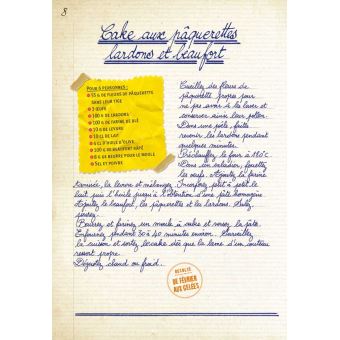 8
Cake aux pâquerettes
lardons et beaufort
POUR 6 PERSONNES :
• 55 G DE FLEURS DE PÂQUERETTE
SANS LEUR TIGE
• 3 ŒUFS
• 100 G DE LARDONS
• 100 G DE FARINE DE BLÉ
• 10 G DE LEVURE
• 10 CL DE LAIT
• 6 CL D'HUILE D'OLIVE
• 100 G DE BEAUFORT RÂPÉ
• 6 G DE BEURRE POUR LE MOULE
• SEL ET POIVRE
Cueillez des fleurs de
pâquerette propres pour
ne pas avoir à les laver et
conserver ainsi leur pollen.
Dans une poêle, faites
revenir les lardons pendant
quelques minutes.
Préchauffez le four à 180°C.
Dans un saladier, fouettez
les œufs. Ajoutez la farine
tamisée, la levure et mélangez. Incorporez petit à petit le
lait puis l'huile jusqu'à l'obtention d'une pâte homogène.
Ajoutez le beaufort, les pâquerettes et les lardons. Salez,
poivrez.
Beurrez et farinez un moule à cake et versez la pâte.
Enfournez pendant 30 à 40 minutes environ. Surveillez
la cuisson et sortez le cake dès que la lame d'un couteau
ressort propre.
Dégustez chaud ou froid.
RÉCOLTE
DE FÉVRIER
AUX GELÉES